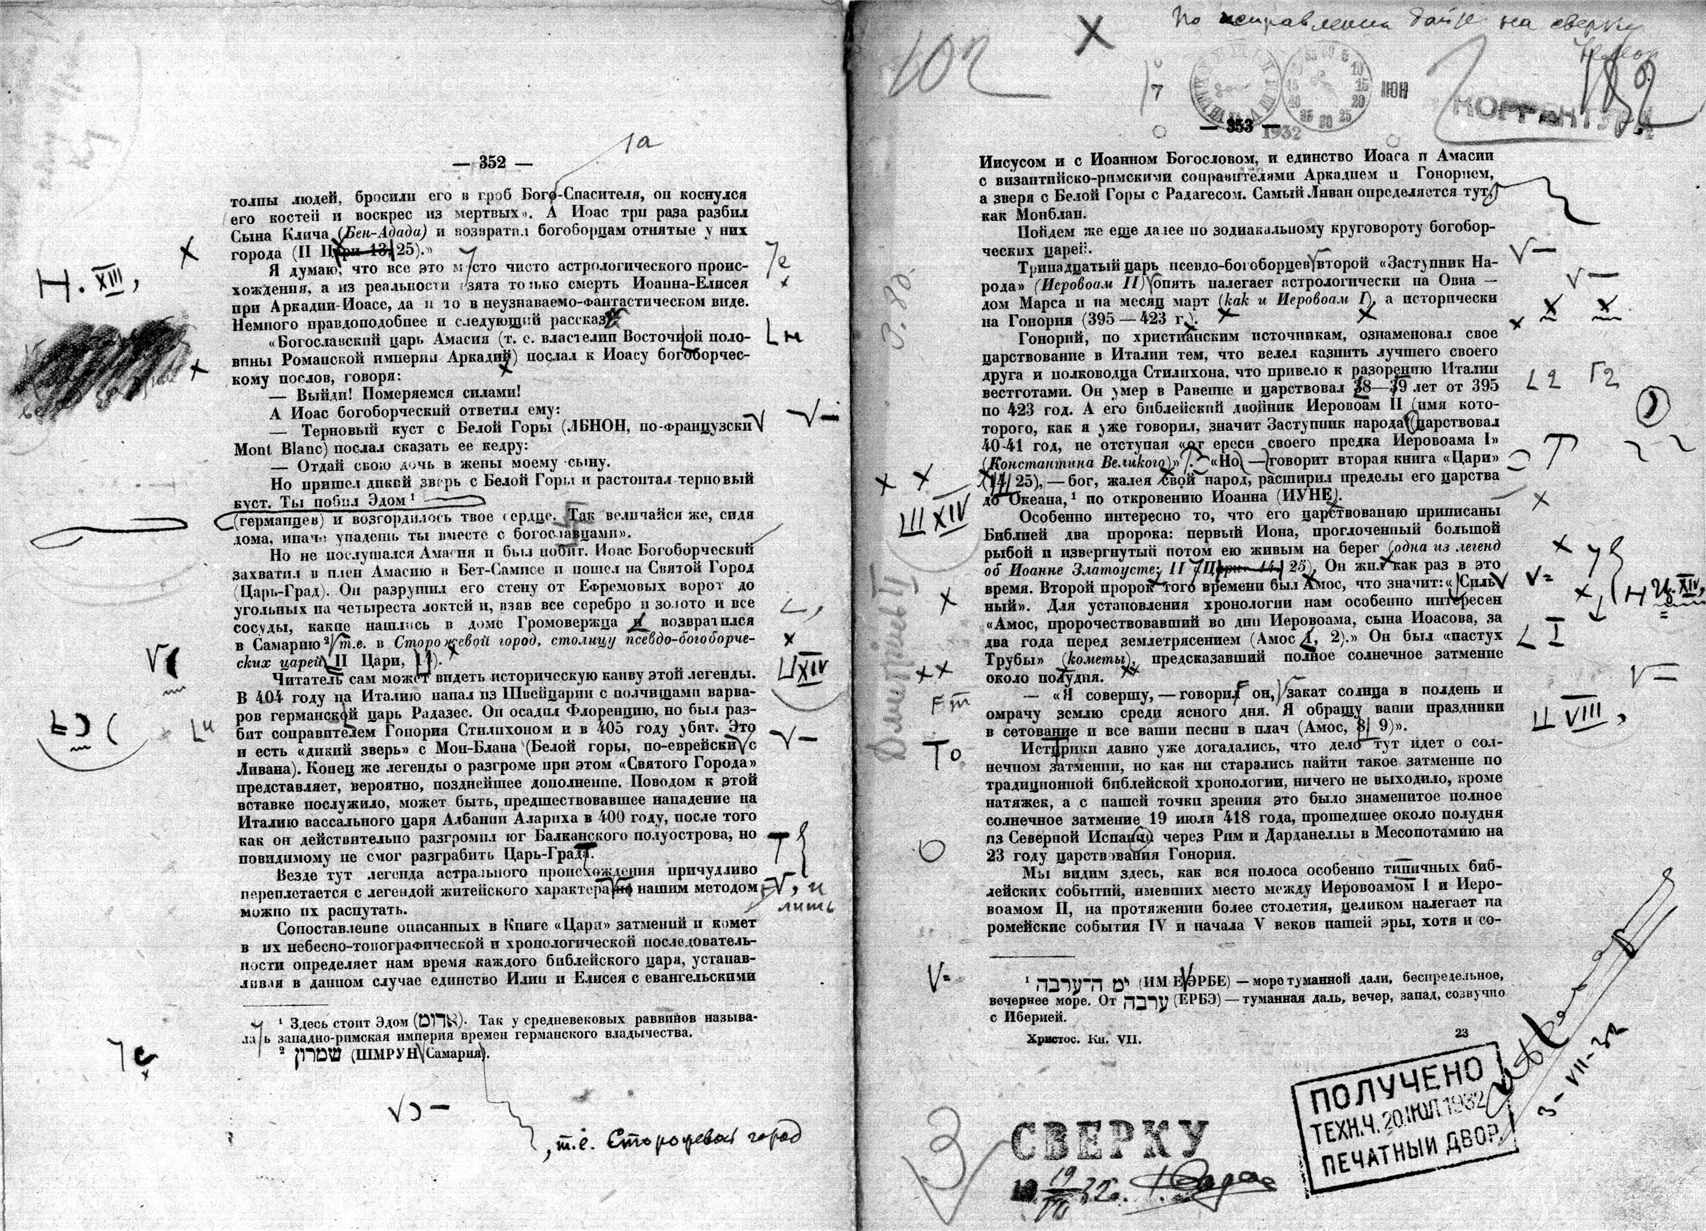 1а
— 352 —
толпы людей, бросили его в гроб Бога-Спасителя, он коснулся
его костей и воскрес из мертвых». А Иоас три раза разбил
Сына Клича (Бен-Адада) и возвратил богоборцам отнятые у них
города (II Цари 13, 25).»
Я думаю, что все это место чисто астрологического проис-
хождения, а из реальности взята только смерть Иоанна-Елисея
при Аркадии-Иоасе, да и то в неузнаваемо-фантастическом виде.
Немного правдоподобнее и следующий рассказ
«Богославский царь Амасия (т. е. властелин Восточной поло-
вины Романской империи Аркадий) послал к Иоасу богоборчес-
кому послов, говоря:
— Выйди! Померяемся силами!
А Иоас богоборческий ответил ему:
— Терновый куст с Белой Горы (ЛБНОН, по-французски
Mont Blanc) послал сказать ее кедру:
— Отдай свою дочь в жены моему сыну.
Но пришел дикий зверь с Белой Горы и растоптал терновый
куст. Ты побил Эдом ¹
(германцев) и возгордилось твое сердце. Так величайся же, сидя
дома, иначе упадешь ты вместе с богославцами».
Но не послушался Амасия и был побит. Иоас Богоборческий
захватил в плен Амасию в Бет-Самисе и пошел на Святой Город
(Царь-Град). Он разрушил его стену от Ефремовых ворот до
угольных на четыреста локтей и, взяв все серебро и золото и все
сосуды, какие нашлись в доме Громовержца и возвратился
в Самарию ² т.е. в Сторожевой город, столицу псевдо-богоборче-
ских царей II Цари, 14).
Читатель сам может видеть историческую канву этой легенды.
В 404 году на Италию напал из Швейцарии с полчищами варва-
ров германской царь Радагес. Он осадил Флоренцию, но был раз-
бит соправителем Гонория Стилихоном и в 405 году убит. Это
и есть «дикий зверь» с Мон-Блана (Белой горы, по-еврейски с
Ливана). Конец же легенды о разгроме при этом «Святого Города»
представляет, вероятно, позднейшее дополнение. Поводом к этой
вставке послужило, может быть, предшествовавшее нападение на
Италию вассального царя Албании Алариха в 400 году, после того
как он действительно разгромил юг Балканского полуострова, но
повидимому не смог разграбить Царь-Града.
Везде тут легенда астрального происхождения причудливо
переплетается с легендой житейского характера нашим методом
можно их распутать.
Сопоставление описанных в Книге «Цари» затмений и комет
в их небесно-топографической и хронологической последователь-
ности определяет нам время каждого библейского царя, устанав-
ливая в данном случае единство Илии и Елисея с евангельскими
¹ Здесь стоит Эдом (אדום). Так у средневековых раввинов называ-
лась западно-римская империя времен германского владычества.
² שמרון (ШМРУН Самария).
, т.е. Сторожевой город
Н. XIII,
Ц XIV
, и
лишь
По исправлении дайте на сверку
7
ИЮН
1932
КОРРЕКТУРА
— 353 —
Иисусом и с Иоанном Богословом, и единство Иоаса и Амасии
с византийско-римскими соправителями Аркадием и Гонорием,
а зверя с Белой Горы с Радагесом. Самый Ливан определяется тут,
как Монблан.
Пойдем же еще далее по зодиакальному круговороту богобор-
ческих царей.
Тринадцатый царь псевдо-богоборцев второй «Заступник На-
рода» (Иеровоам II) опять налегает астрологически на Овна —
дом Марса и на месяц март (как и Иеровоам I), а исторически
на Гонория (395 — 423 г.).
Гонорий, по христианским источникам, ознаменовал свое
царствование в Италии тем, что велел казнить лучшего своего
друга и полководца Стилихона, что привело к разорению Италии
вестготами. Он умер в Равенне и царствовал 38—39 лет от 395
по 423 год. А его библейский двойник Иеровоам II (имя кото-
торого, как я уже говорил, значит Заступник народа) царствовал
40-41 год, не отступая «от ереси своего предка Иеровоама I»
(Константина Великого)». «Но — говорит вторая книга «Цари»
(14, 25), — бог, жалея свой народ, расширил пределы его царства
до Океана, ¹ по откровению Иоанна (ИУНЕ).
Особенно интересно то, что его царствованию приписаны
Библией два пророка: первый Иона, проглоченный большой
рыбой и извергнутый потом ею живым на берег (одна из легенд
об Иоанне Златоусте; II Цари 14, 25). Он жил как раз в это
время. Второй пророк того времени был Амос, что значит: «Силь-
ный». Для установления хронологии нам особенно интересен
«Амос, пророчествовавший во дни Иеровоама, сына Иоасова, за
два года перед землетрясением (Амос 1, 2).» Он был «пастух
Трубы» (кометы), предсказавший полное солнечное затмение
около полудня.
— «Я совершу, — говорил он, закат солнца в полдень и
омрачу землю среди ясного дня. Я обращу ваши праздники
в сетование и все ваши песни в плач (Амос, 8, 9)».
Историки давно уже догадались, что дело тут идет о сол-
нечном затмении, но как ни старались найти такое затмение по
традиционной библейской хронологии, ничего не выходило, кроме
натяжек, а с нашей точки зрения это было знаменитое полное
солнечное затмение 19 июля 418 года, прошедшее около полудня
из Северной Испании через Рим и Дарданеллы в Месопотамию на
23 году царствования Гонория.
Мы видим здесь, как вся полоса особенно типичных биб-
лейских событий, имевших место между Иеровоамом I и Иеро-
воамом II, на протяжении более столетия, целиком налегает на
ромейские события IV и начала V веков нашей эры, хотя и со-
¹ ים ה־ערבה (ИМ Е ЭРБЕ) — море туманной дали, беспредельное,
вечернее море. От ערבה (ЕРБЭ) — туманная даль, вечер, запад, созвучно
с Иберией.
Христос. Кн. VII.
23
Ц XIV
Н Ц. XIV,
Ц VIII,
СВЕРКУ
ПОЛУЧЕНО
ТЕХН.Ч. 20 ИЮЛ 1932
ПЕЧАТНЫЙ ДВОР
3-VII-32